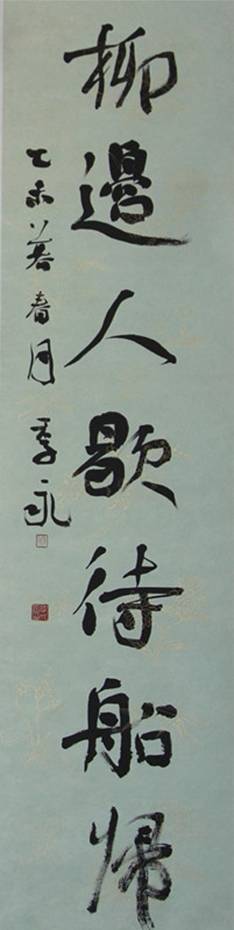 柳邊人歇待船歸
乙未暮春月 季永